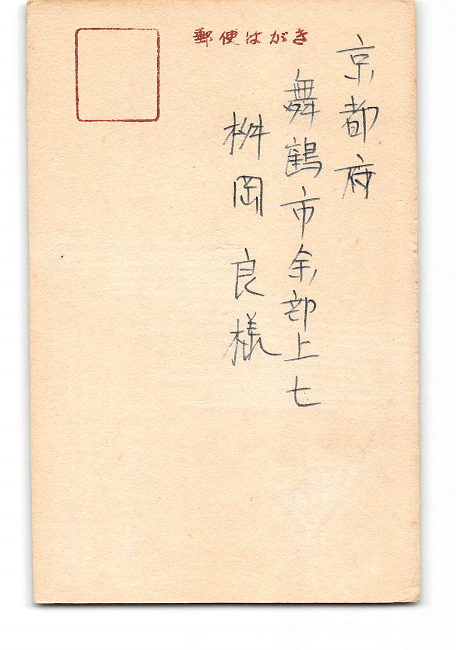 郵便はがき
京都府
舞鶴市余部上七
桝岡良様